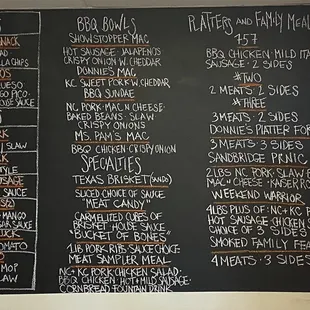 SNACK
AD
LA CHIPS
OS
UESO
GO PICO
OUSE SAUCE
RK
SLAW
RK
TYLE
SAGE
SAUCE
MANGO
GAR SAUCE
ICK
TOMATO
MOP
LAW
BBQ BOWLS
SHOWSTOPPER MAC
HOT SAUSAGE JALAPENOS
CRISPY ONION W. CHEDDAR
DONNIE'S MAC
KC SWEET PORK W. CHEDDAR
BBQ SUNDAE
NC PORK · MAC N CHEESE
BAKED BEANS · SLAW
CRISPY ONIONS
MS. PAM'S MAC
BBQ CHICKEN · CRISPY ONION
SPECIALTIES
TEXAS BRISKET (SANDO)
SLICED CHOICE OF SAUCE
"MEAT CANDY"
CARMELITED CUBES OF
BRISKET · HOUSE SAUCE
"BUCKET OF BONES"
1 LB PORK RIBS · SAUCE CHOICE
MEAT SAMPLER MEAL
NC + KC PORK · CHICKEN SALAD
BBQ CHICKEN · HOT + MILD SAUSAGE
CORNBREAD · FOUNTAIN DRINK
PLATTERS AND FAMILY MEAL
757
BBQ CHICKEN · MILD ITA
SAUSAGE · 2 SIDES
#TWO
2 MEATS · 2 SIDES
#THREE
3 MEATS · 2 SIDES
DONNIE'S PLATTER FOR
3 MEATS · 3 SIDES
SANDBRIDGE PICNIC
2 LBS NC PORK · SLAW
MAC N CHEESE · KAISER RO
WEEKEND WARRIOR
4 LBS PLUS OF · NC + KC
HOT SAUSAGE CHICKEN
CHOICE OF 3 SIDES
SMOKED FAMILY FEA
4 MEATS · 3 SIDES